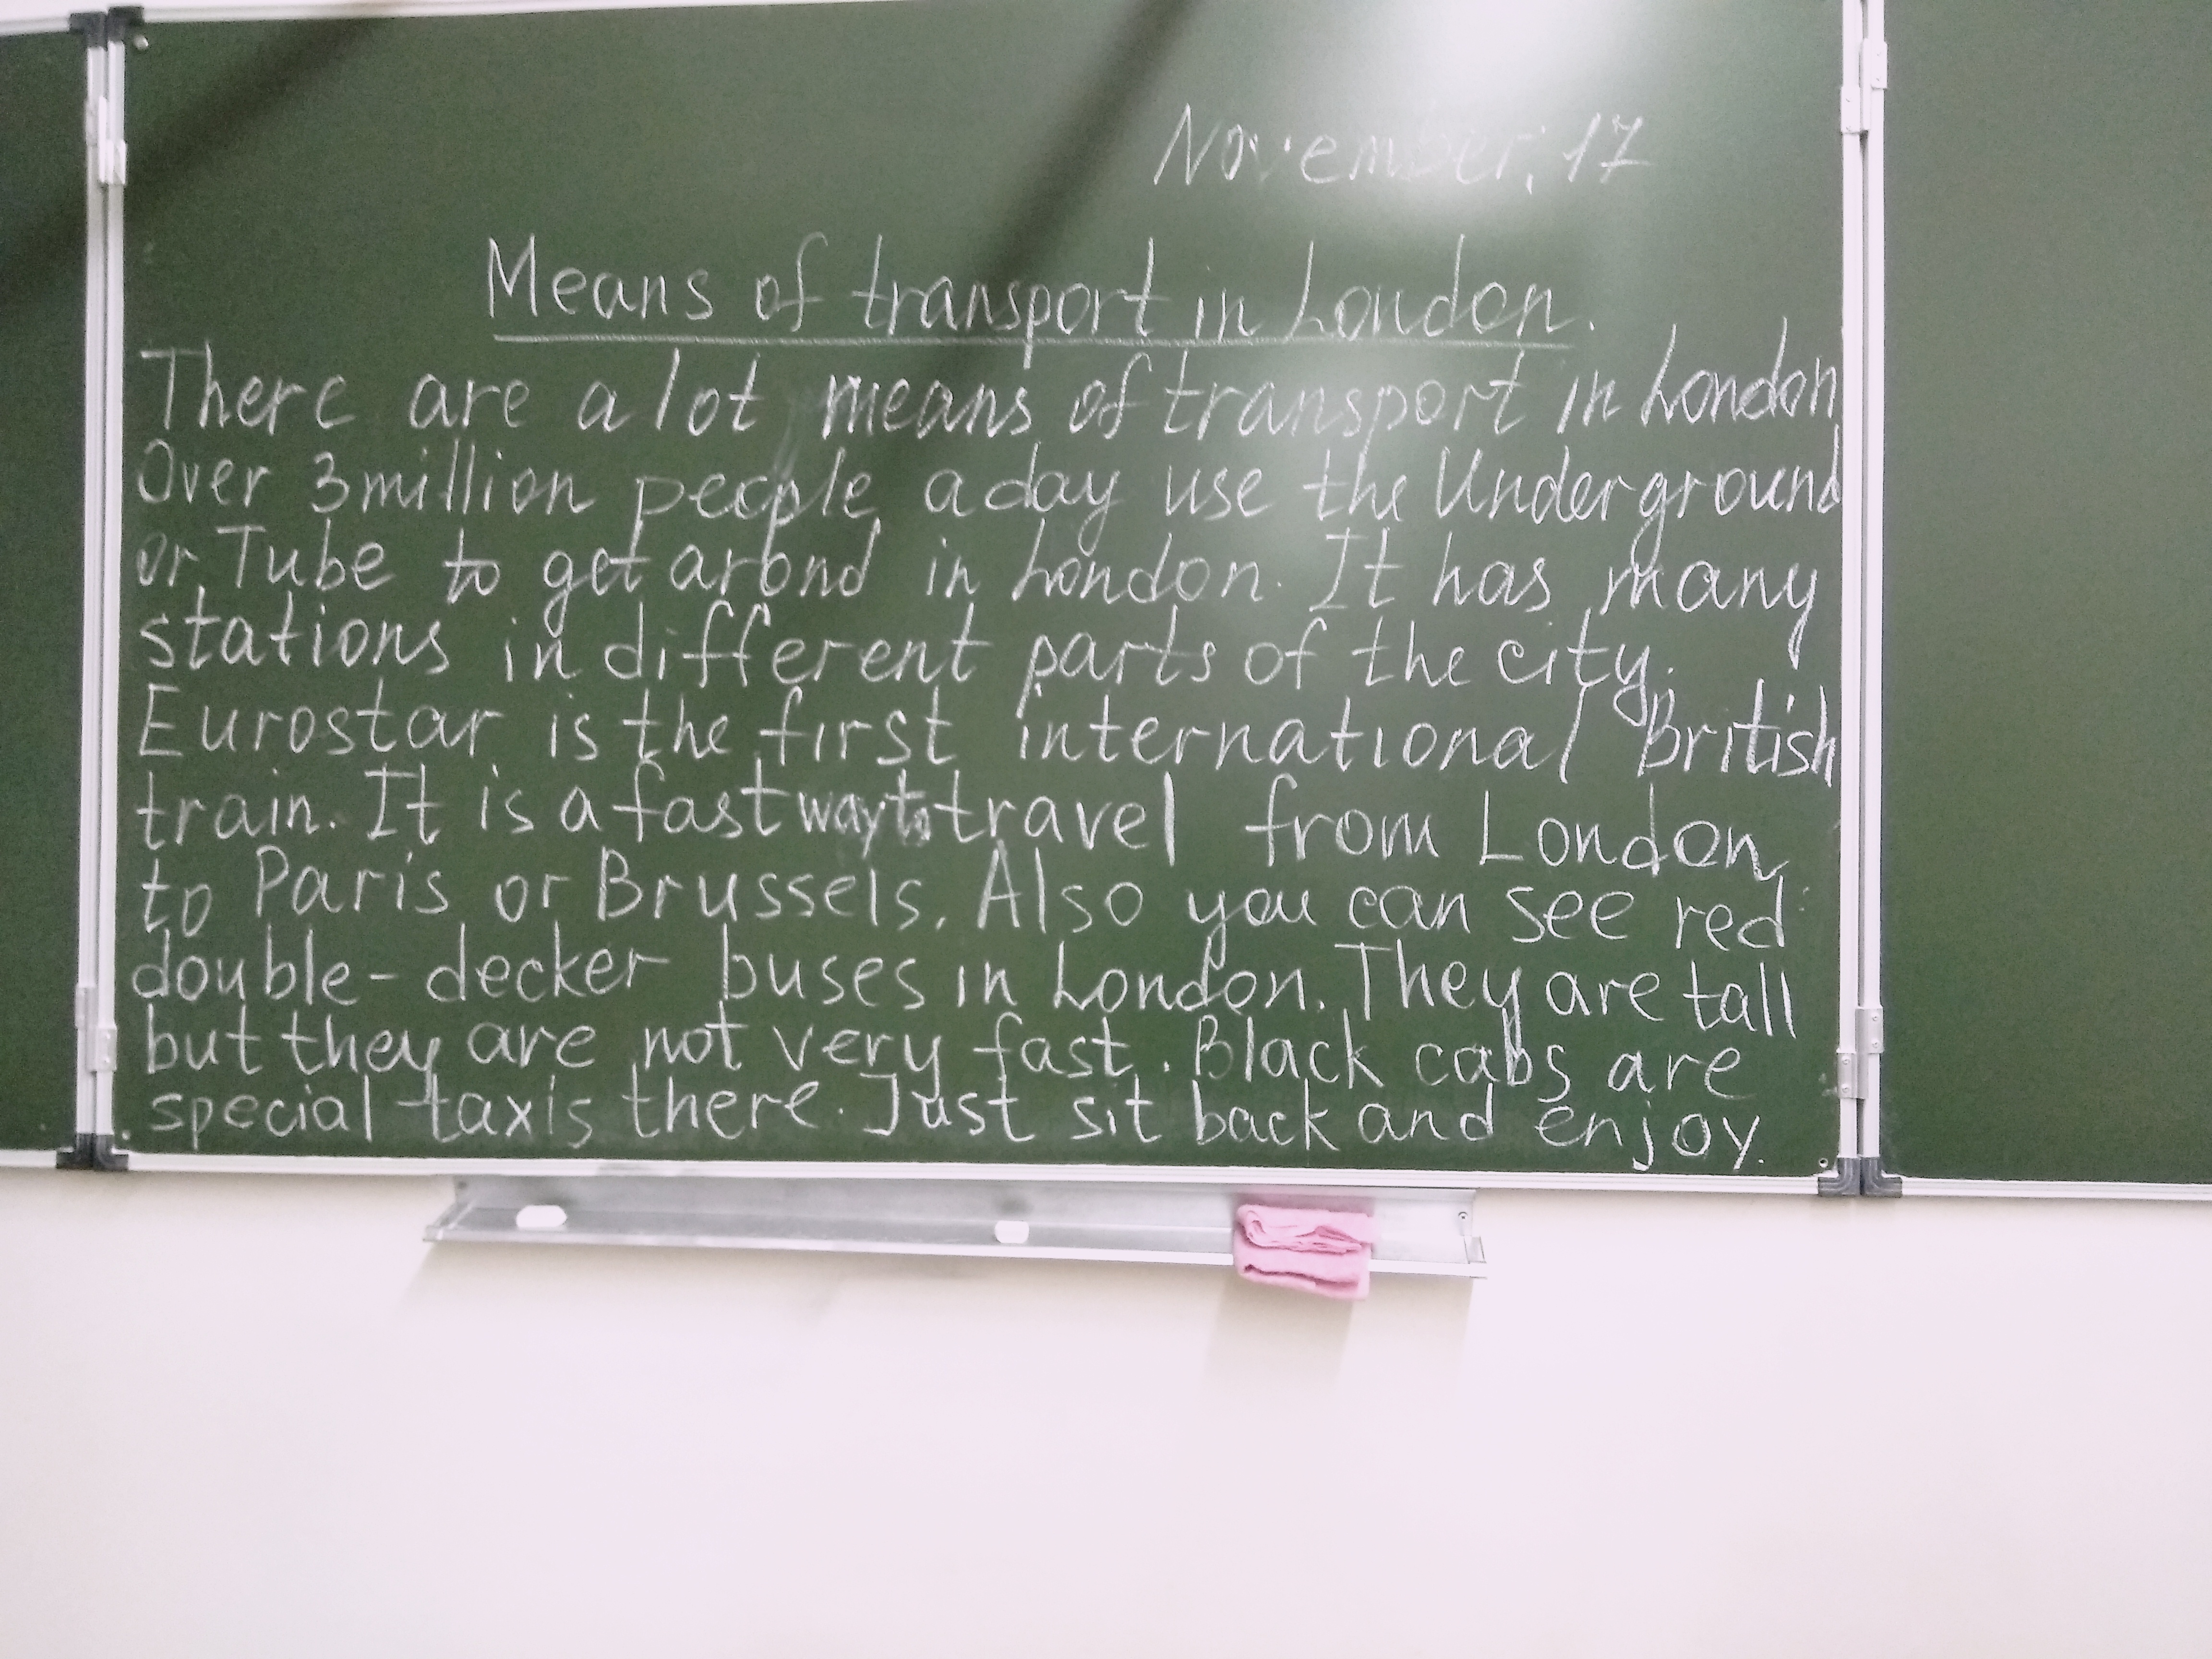 November, 17
Means of transport in London.
There are a lot means of transport in London
Over 3 million people a day use the Underground
or Tube to get arond in London. It has many
stations in different parts of the city.
Eurostar is the first international British
train. It is a fast way to travel from London
to Paris or Brussels. Also you can see red
double-decker buses in London. They are tall
but they are not very fast. Black cabs are
special taxis there. Just sit back and enjoy.